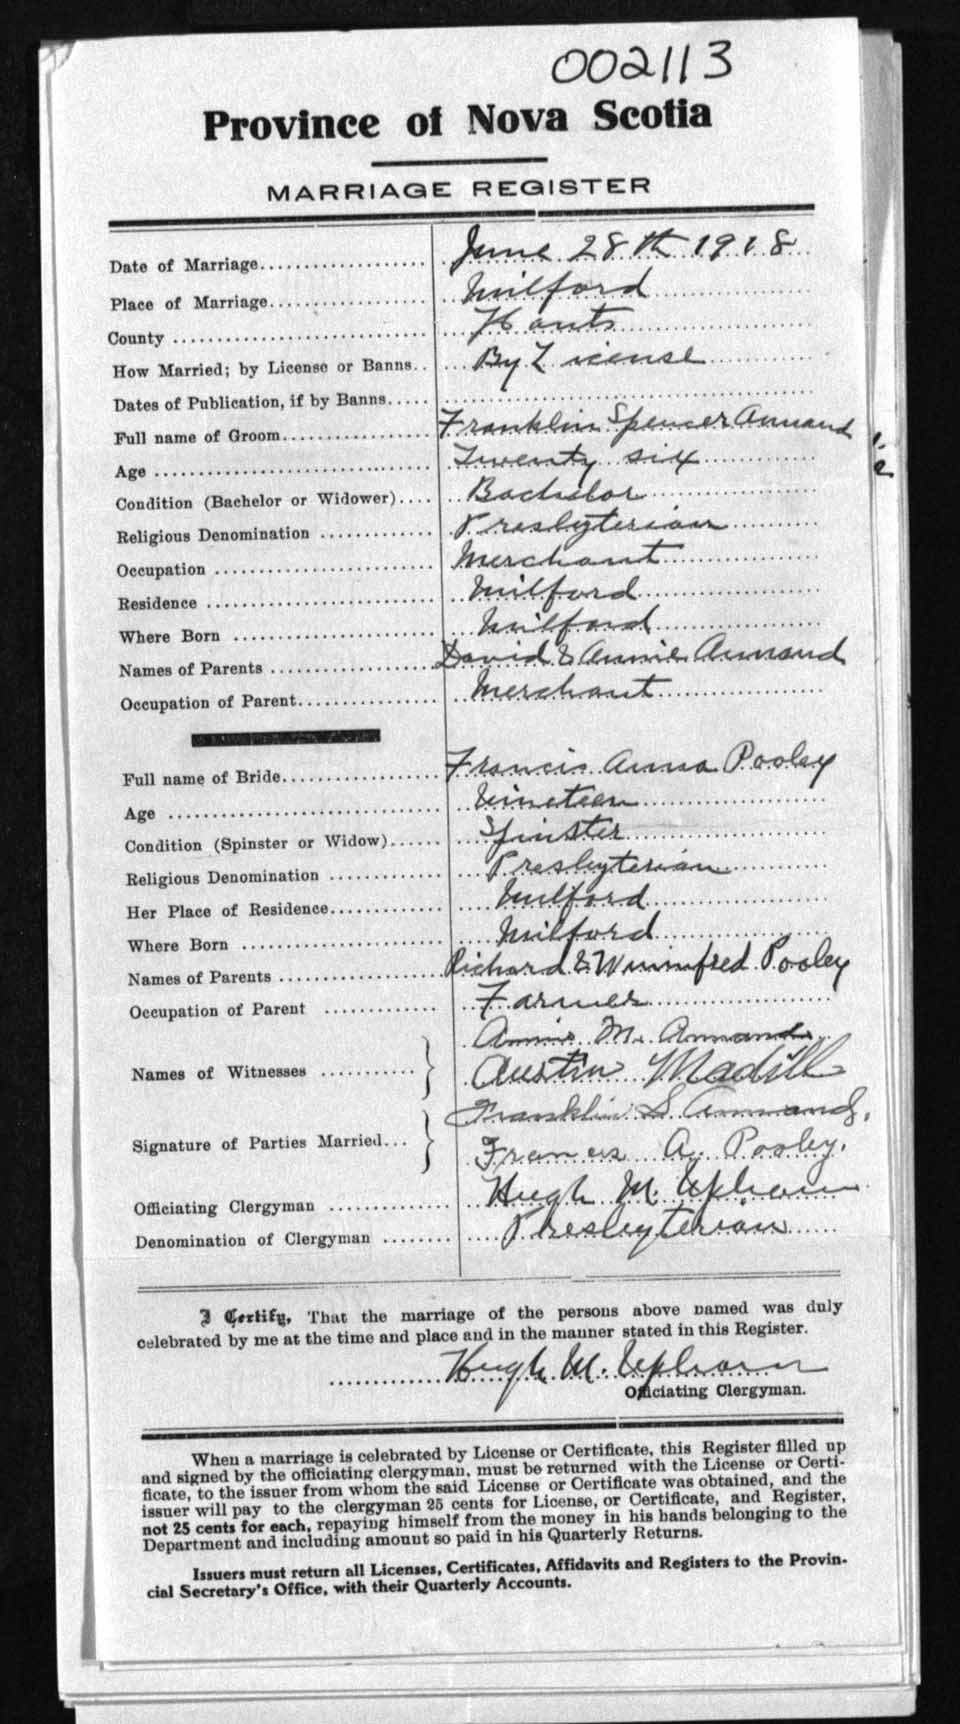 002113
Province of Nova Scotia
MARRIAGE REGISTER
Date of Marriage.................... June 28th 1918
Place of Marriage................... Milford
County ............................. Hants
How Married; by License or Banns.. By License
Dates of Publication, if by Banns.....
Full name of Groom.................. Franklin Spencer Annand
Age ................................ Twenty six
Condition (Bachelor or Widower).... Bachelor
Religious Denomination ............. Presbyterian
Occupation ......................... Merchant
Residence .......................... Milford
Where Born ......................... Milford
Names of Parents ................... David & Annie Annand
Occupation of Parent................ Merchant
Full name of Bride.................. Francis Anna Pooley
Age ................................ Nineteen
Condition (Spinster or Widow)...... Spinster
Religious Denomination ............. Presbyterian
Her Place of Residence.............. Milford
Where Born ......................... Milford
Names of Parents ................... Richard & Winnifred Pooley
Occupation of Parent ............. Farmer
Annie M. Annand
Names of Witnesses ........... Austin Madill
Franklin S. Annand.
Signature of Parties Married... Frances A. Pooley.
Officiating Clergyman .............. Hugh M. Upham
Denomination of Clergyman ........ Presbyterian
I Certify, That the marriage of the persons above named was duly
celebrated by me at the time and place and in the manner stated in this Register.
Hugh M. Upham
Officiating Clergyman.
When a marriage is celebrated by License or Certificate, this Register filled up
and signed by the officiating clergyman, must be returned with the License or Certi-
ficate, to the issuer from whom the said License or Certificate was obtained, and the
issuer will pay to the clergyman 25 cents for License, or Certificate, and Register,
not 25 cents for each, repaying himself from the money in his hands belonging to the
Department and including amount so paid in his Quarterly Returns.
Issuers must return all Licenses, Certificates, Affidavits and Registers to the Provin-
cial Secretary's Office, with their Quarterly Accounts.